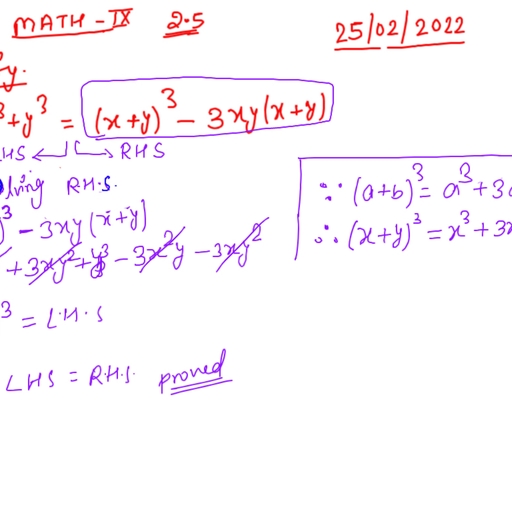 MATH - IX 2.5 25/02/2022
y.
³+y³ = (x+y)³ - 3xy(x+y)
HS ← → RHS
lving R.H.S.
)³ - 3xy(x+y)
+3xy²+y³ - 3x²y - 3xy²
³ = L.H.S
LHS = R.H.S. proved
∵ (a+b)³ = a³+3
∴ (x+y)³ = x³+3x